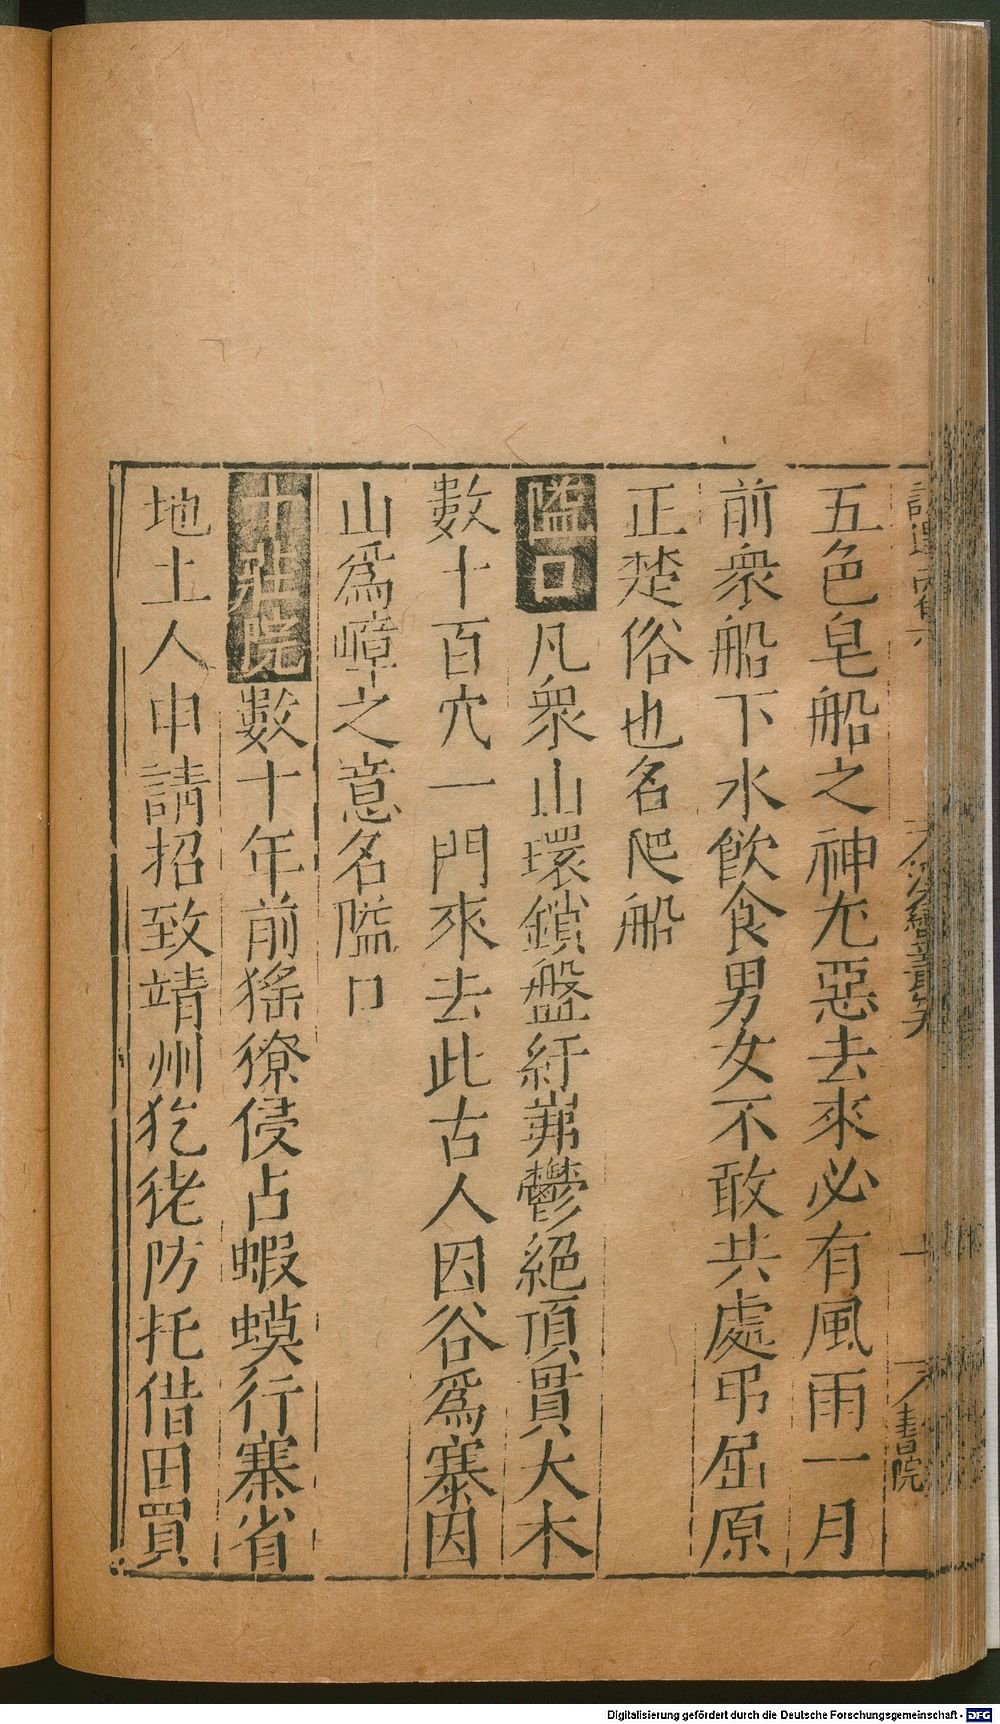 五色皂船之神尤惡去來必有風雨一月
前衆船下水飮食男女不敢共處弔屈原
正楚俗也名爬船
隘口凡衆山環鎖盤紆岪鬱絕頂貫大木
數十百穴一門來去此古人因谷爲寨因
山爲嶂之意名隘口
十莊院數十年前猺獠侵占蝦蟆行寨省
地土人申請招致靖州犵狫防托借田買
書院
Digitalisierung gefördert durch die Deutsche Forschungsgemeinschaft - DFG